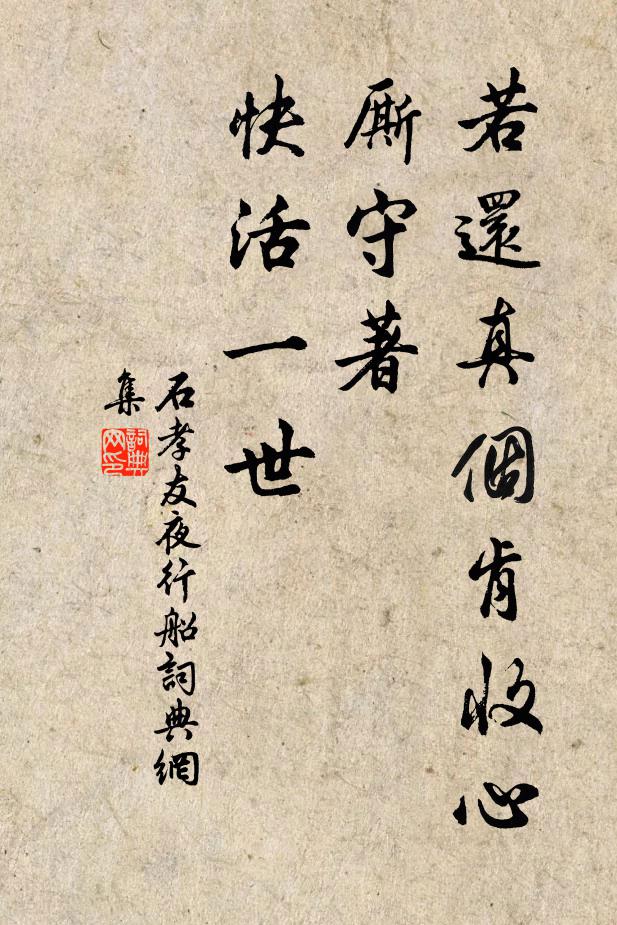 若還真個肯收心
厮守著
快活一世
石孝友夜行船詞典網
集
詞典
网印